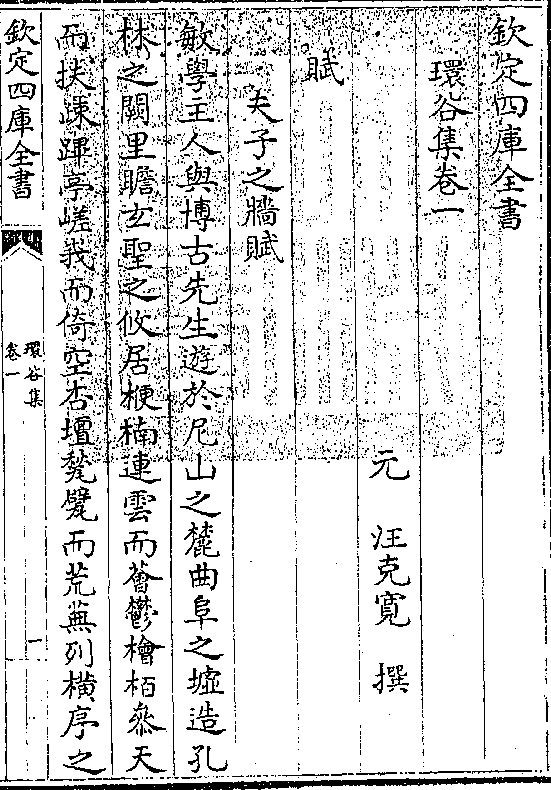 欽定四庫全書
環谷集卷一
元 汪克寬 撰
賦
夫子之牆賦
敏學主人與博古先生遊於尼山之麓曲阜之墟造孔
林之闕里瞻玄聖之攸居梗楠連雲而薈鬱檜栢叅天
而扶疎𨻶亭嵯峩而倚空杏壇甃甓而荒蕪列橫序之
欽定四庫全書
環谷集
卷一
一